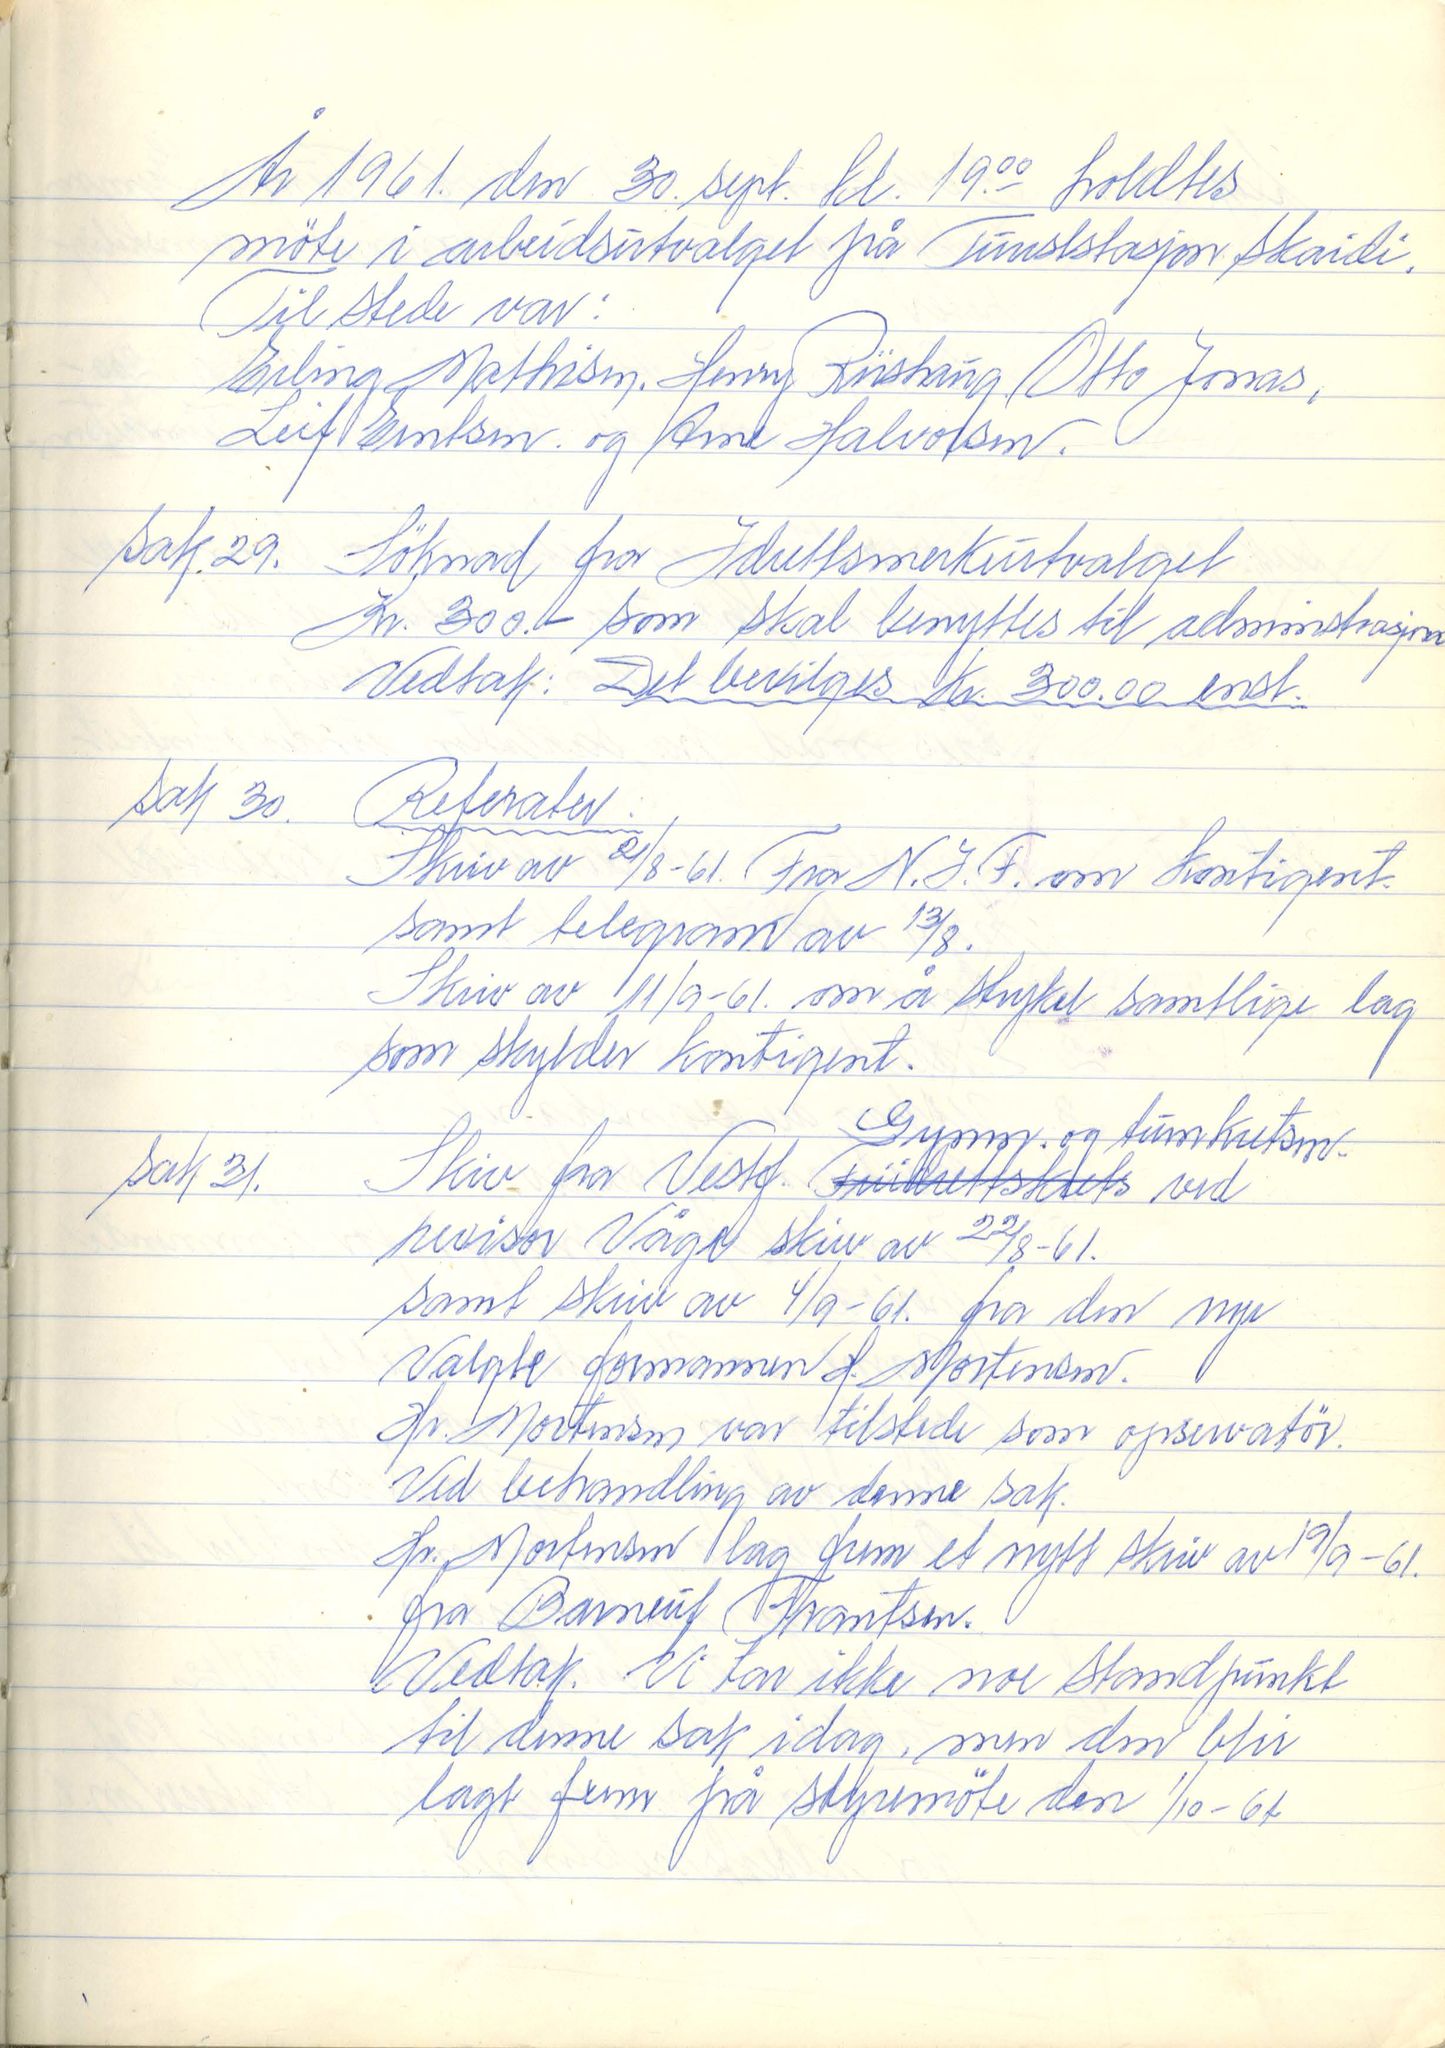 År 1961. den 30. sept. kl. 19.00 holdtes
möte i arbeidsutvalget på Turiststasjon Skaidi.
Til stede var:
Erling Mathisen. Henry Riishaug, Otto Jonas,
Leif Erntsen. og Arne Halvorsen.
Sak. 29. Söknad fra Idrettsmerkeutvalget
Kr. 300.- som skal benyttes til adminstrasjon
Vedtak: Det bevilges Kr. 300.00 enst.
Sak 30. Referater:
Skriv av 21/8-61. Fra N.I.F. om kontigent.
samt telegram av 13/8.
Skriv av 11/9-61. om å stryket samtlige lag
som skylder kontigent.
Gymn. og turnkretsen.
Sak 31. Skriv fra Vestf. Friidrettskrets ved
revisor Våge skriv av 22/8-61.
samt skriv av 4/9-61. fra den nye
Valgte formannen H. Mortensen.
Hr. Mortensen var tilstede som opservatör.
Ved behandling av denne sak.
Hr. Mortensen lag frem et nytt skriv av 19/9-61.
fra Barneuf Frantsen.
Vedtak. Vi tar ikke noe standpunkt
til denne sak idag, men den blir
lagt frem på styremöte den 1/10-61